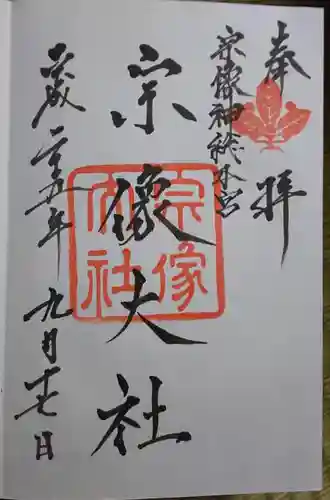 奉拝
宗像神総本宮
宗像大社
宗像
大社
平成二十五年九月十七日